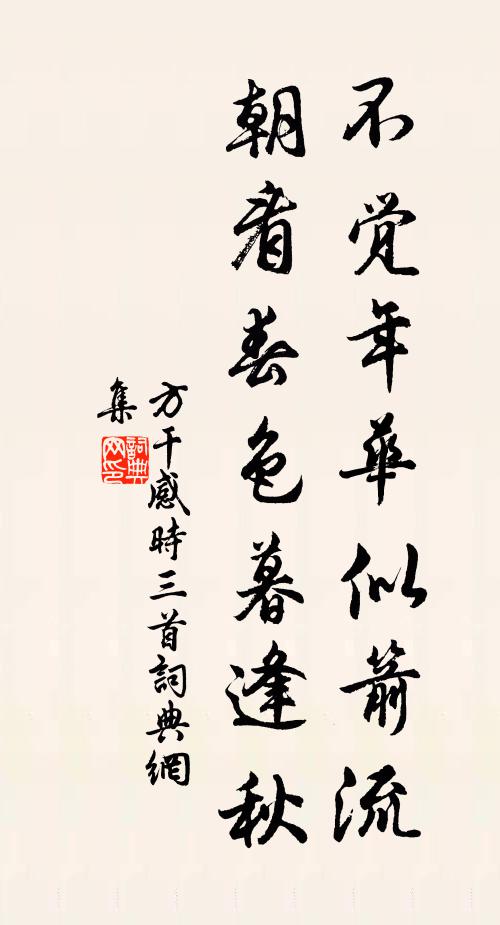 不覺年華似箭流
朝看春色暮逢秋
方干感時三首詞典網
集
詞典網印